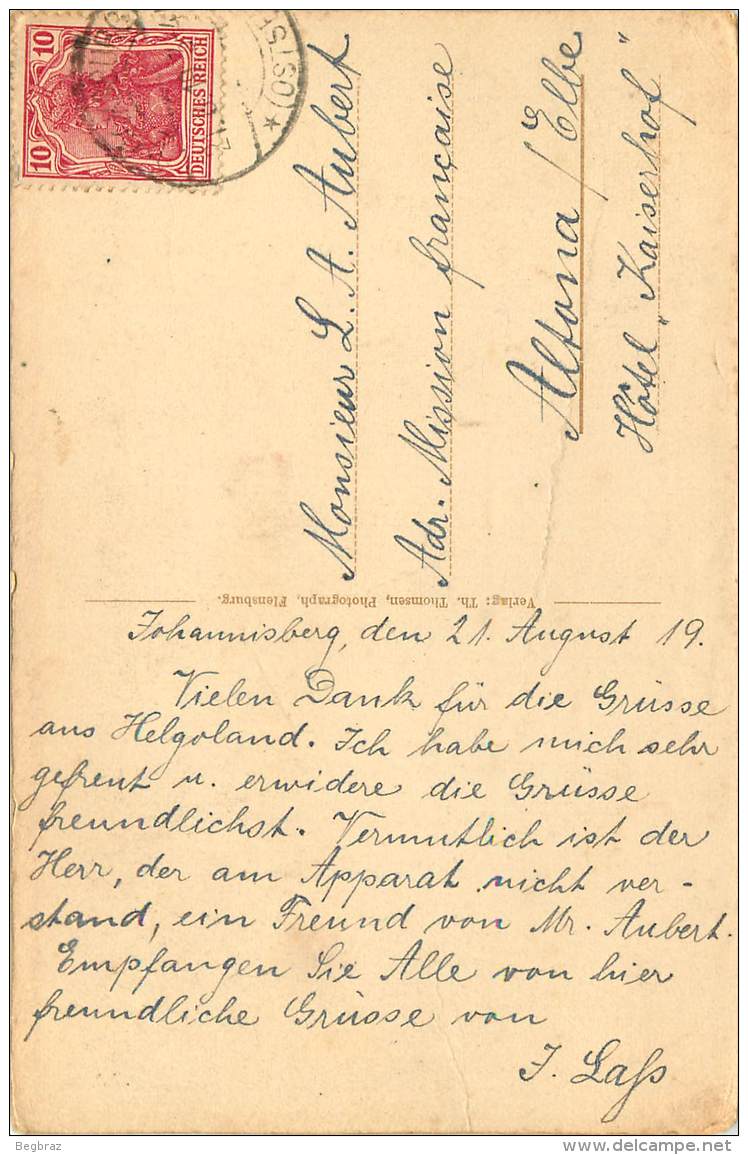 10
10
DEUTSCHES REICH
(OSTS
Monsieur L. A. Aubert
Adr. Mission française
Altona / Elbe
Hôtel „Kaiserhof"
Verlag: Th. Thomsen, Photograph, Flensburg.
Johannisberg, den 21. August 19.
Vielen Dank für die Grüsse
aus Helgoland. Ich habe mich sehr
gefreut u. erwidere die Grüsse
freundlichst. Vermutlich ist der
Herr, der am Apparat nicht ver-
stand, ein Freund von Mr. Aubert.
Empfangen Sie Alle von hier
freundliche Grüsse von
J. Laß
Begbraz
delcampe.net